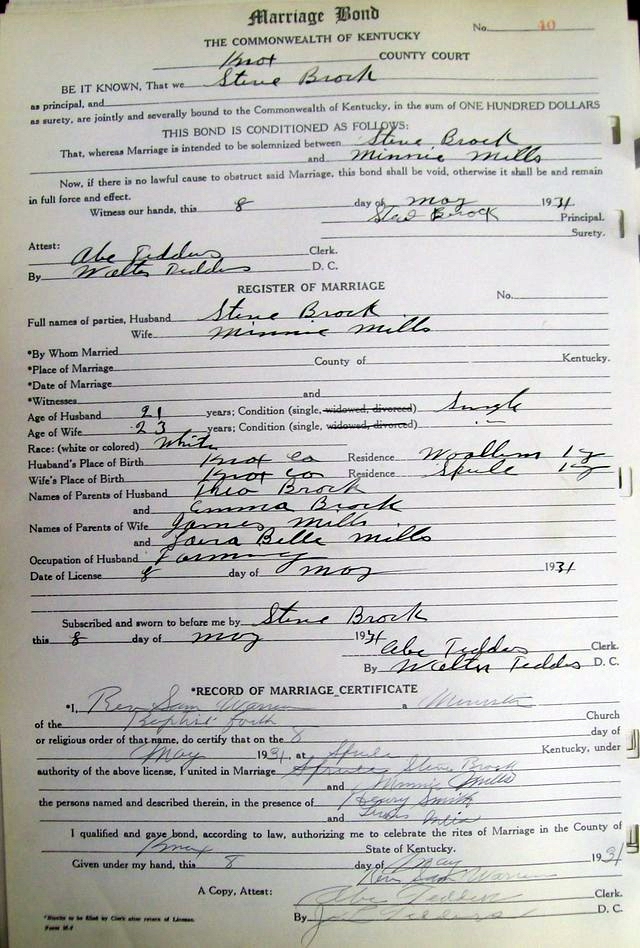 Marriage Bond
No. 40
THE COMMONWEALTH OF KENTUCKY
Knox COUNTY COURT
BE IT KNOWN, That we Steve Brock
as principal, and
as surety, are jointly and severally bound to the Commonwealth of Kentucky, in the sum of ONE HUNDRED DOLLARS
THIS BOND IS CONDITIONED AS FOLLOWS:
That, whereas Marriage is intended to be solemnized between Steve Brock
and Minnie Mills
Now, if there is no lawful cause to obstruct said Marriage, this bond shall be void, otherwise it shall be and remain
in full force and effect.
Witness our hands, this 8 day of May 1931
Brock Principal.
Surety.
Attest:
Abe Tedders Clerk.
By Walter Tedders D. C.
REGISTER OF MARRIAGE
No.
Full names of parties, Husband Steve Brock
Wife Minnie Mills
*By Whom Married
*Place of Marriage County of Kentucky.
*Date of Marriage
*Witnesses and
Age of Husband 21 years; Condition (single, widowed, divorced) Single
Age of Wife 23 years; Condition (single, widowed, divorced) "
Race: (white or colored) White
Husband's Place of Birth Knox Co Residence Woollum Ky
Wife's Place of Birth Knox Co Residence Spule Ky
Names of Parents of Husband Theo Brock
and Emma Brock
Names of Parents of Wife James Mills
and Belle Mills
Occupation of Husband Farming
Date of License 8 day of May 1931
Subscribed and sworn to before me by Steve Brock
this 8 day of May 1931
Abe Tedders Clerk.
By Walter Tedders D. C.
*RECORD OF MARRIAGE CERTIFICATE
*I, Rev Sam Warren a Minister
of the Baptist Church
or religious order of that name, do certify that on the 8 day of
May 1931, at Spule Kentucky, under
authority of the above license, I united in Marriage Steve Brock
and Minnie Mills
the persons named and described therein, in the presence of Henry Smith
and
I qualified and gave bond, according to law, authorizing me to celebrate the rites of Marriage in the County of
Knox State of Kentucky.
Given under my hand, this 8 day of May 1931
Rev Sam Warren
A Copy, Attest: Abe Tedders Clerk.
By Tedders D. C.
*Blanks to be filled by Clerk after return of License.